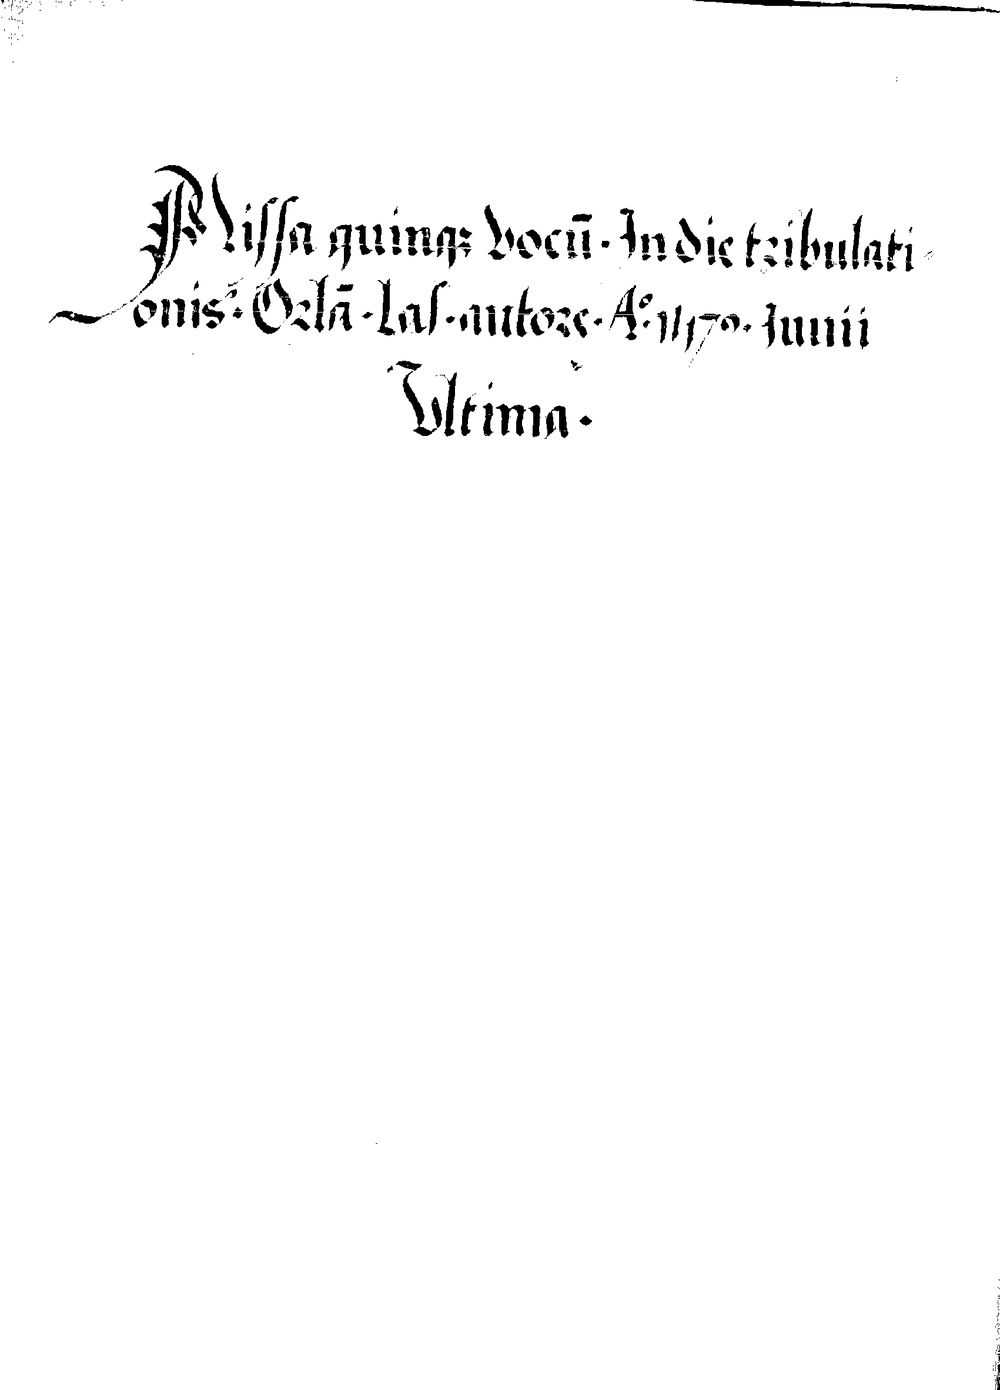 Missa quinqꝫ vocū · In die tribulati
onis · Orlā · Las · autore · Aº · 1570 · Junii
Ultima ·